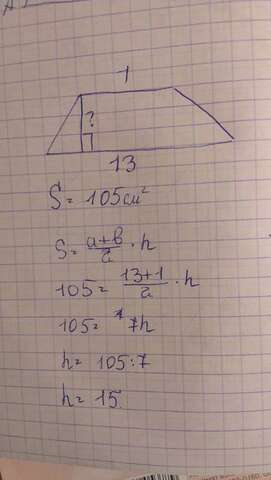 1
?
13
S = 105 см²
S = a+b/2 · h
105 = 13+1/2 · h
105 = 7h
h = 105:7
h = 15